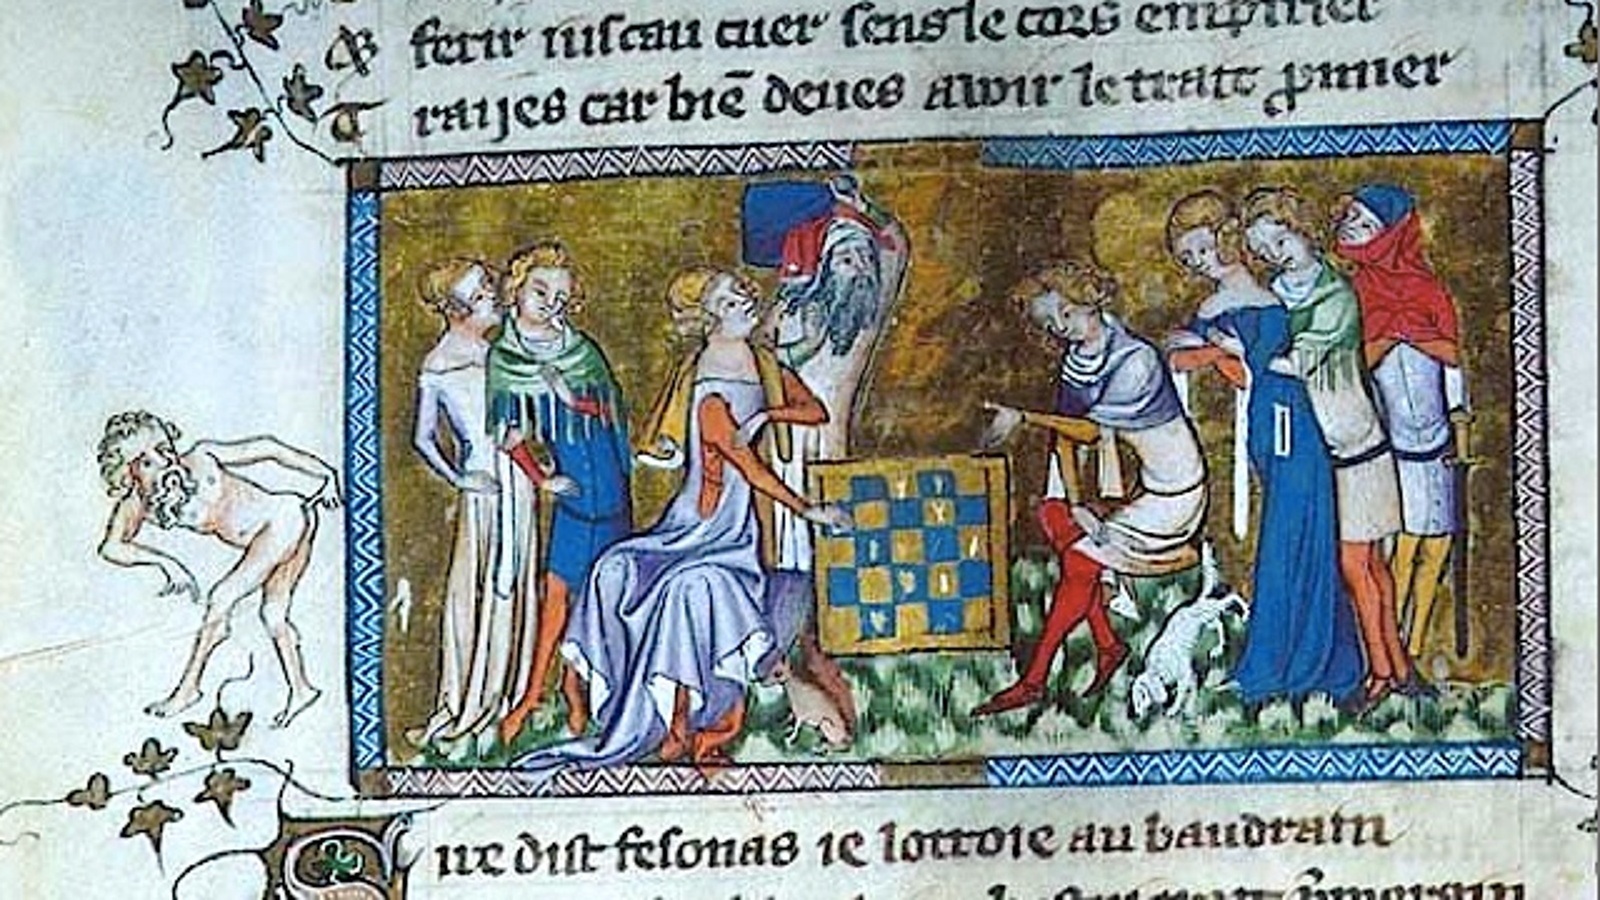 & ferir iuscau cuer sens le cors empirier
T raijes car biē deues awir le trait p̱mier
S ire dist fesonas ie lottroie au baudrain